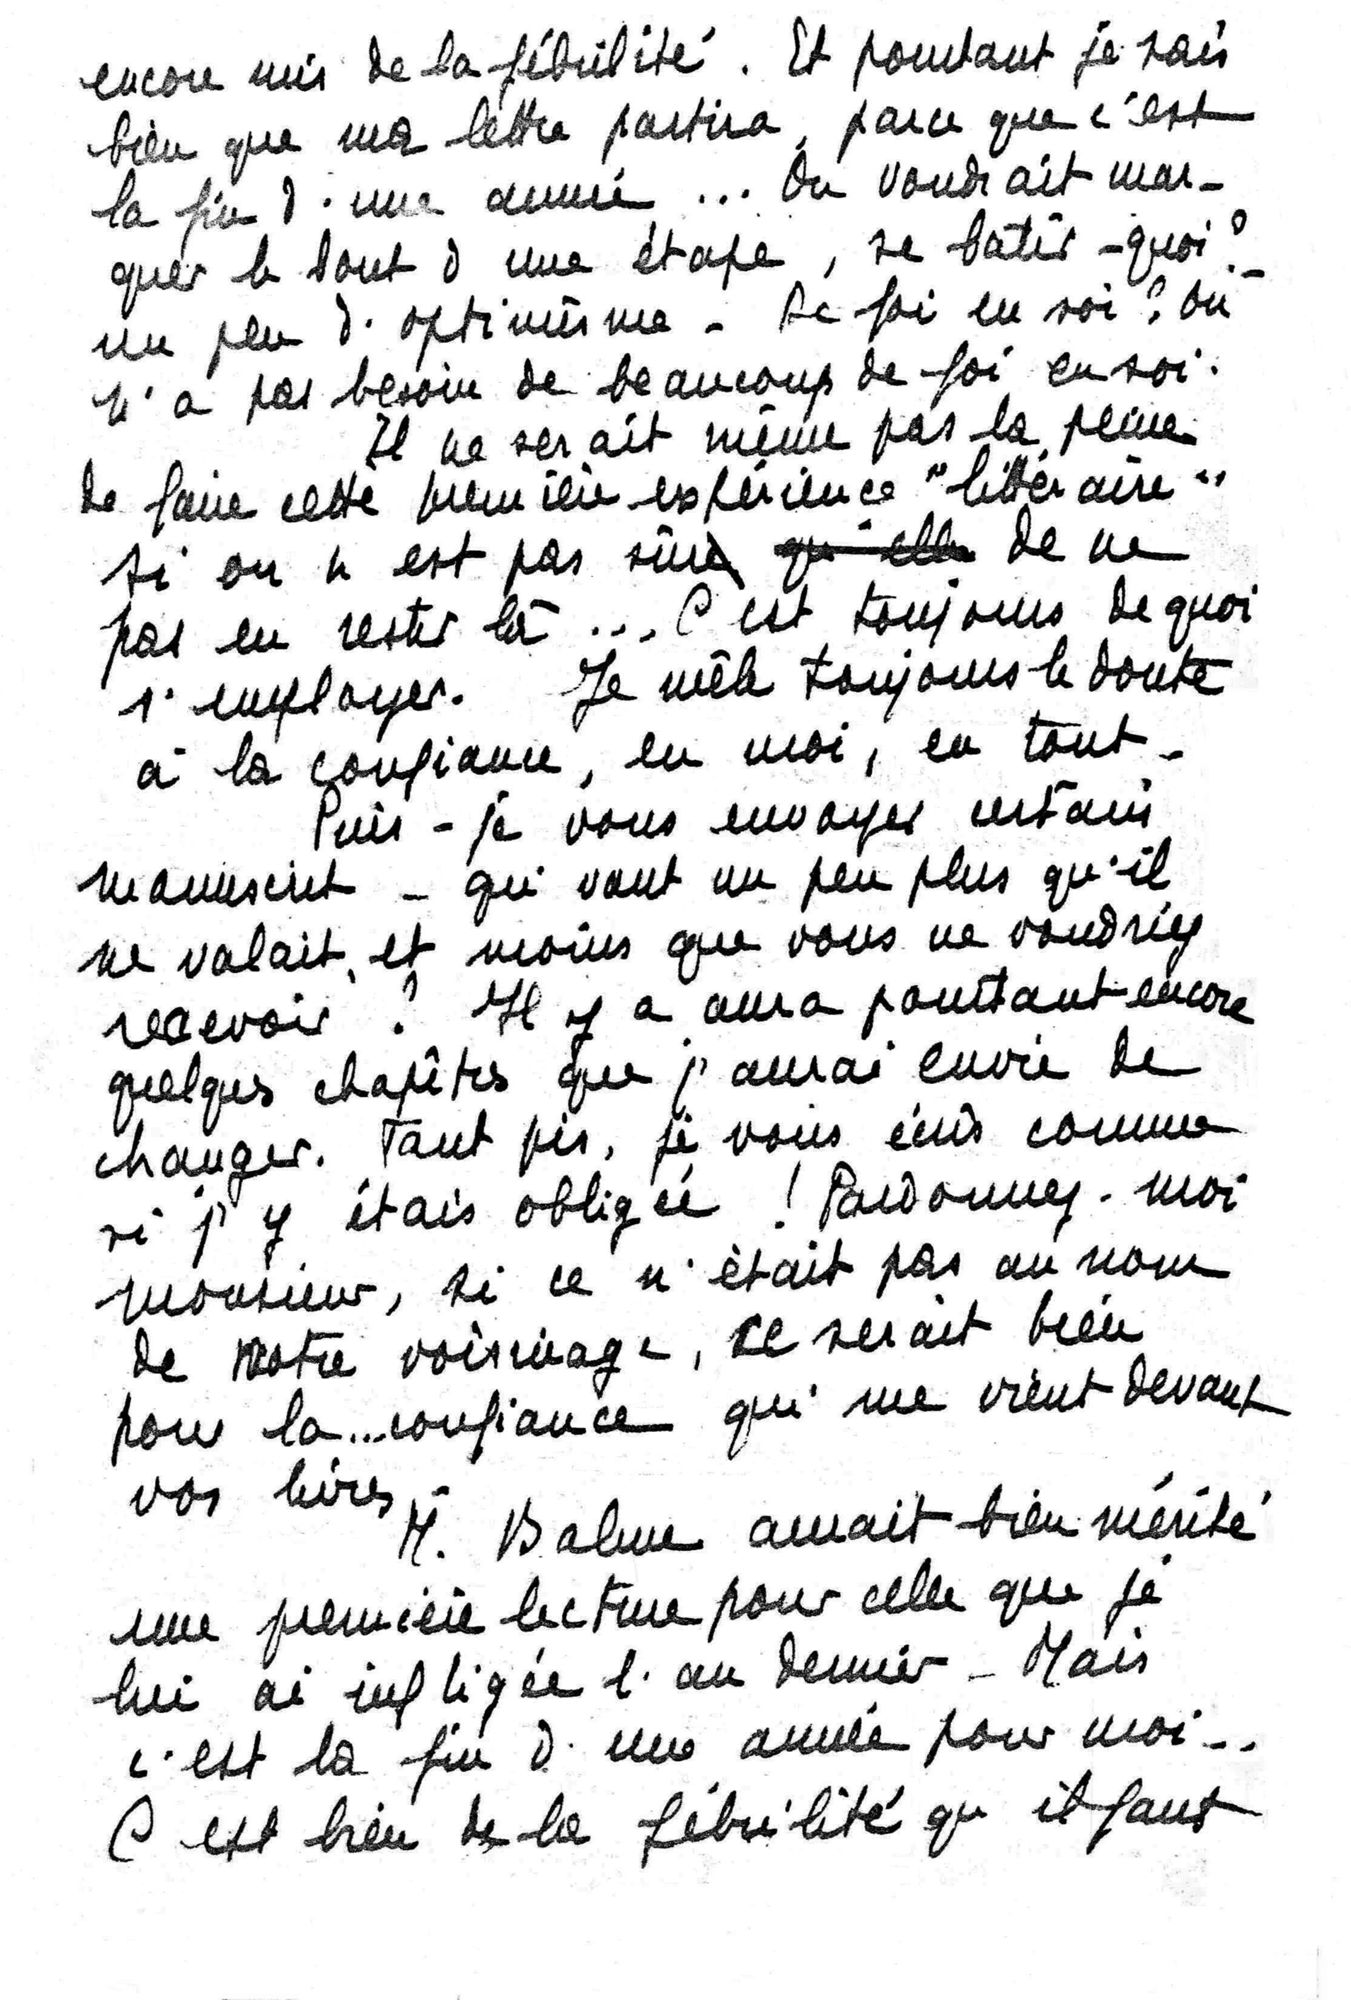 encore mis de la fébrilité. Et pourtant je sais
bien que ma lettre partira, parce que c'est
la fin d'une année ... On voudrait mar-
quer le bout d une étape, se bâtir - quoi ? -
un peu d'optimisme - De foi en soi ? On
n'a pas besoin de beaucoup de foi en soi.
Il ne serait même pas la peine
de faire cette première expérience "littéraire"
si on n est pas sûre qu'elle de ne
pas en rester là .... C est toujours de quoi
s'employer. Je mêle toujours le doute
à la confiance, en moi, en tout -
Puis-je vous envoyer certain
manuscrit - qui vaut un peu plus qu'il
ne valait, et moins que vous ne voudriez
recevoir ? Il y a aura pourtant encore
quelques chapîtres que j'aurai envie de
changer. Tant pis, je vous écris comme
si j'y étais obligée ! Pardonnez-moi
monsieur, si ce n'était pas au nom
de notre voisinage, ce serait bien
pour la ... confiance qui me vient devant
vos livres.
M. Balme aurait bien mérité
une première lecture pour celle que je
lui ai infligée l'an dernier - Mais
c'est la fin d'une année pour moi ...
C est bien de la fébrilité qu il faut